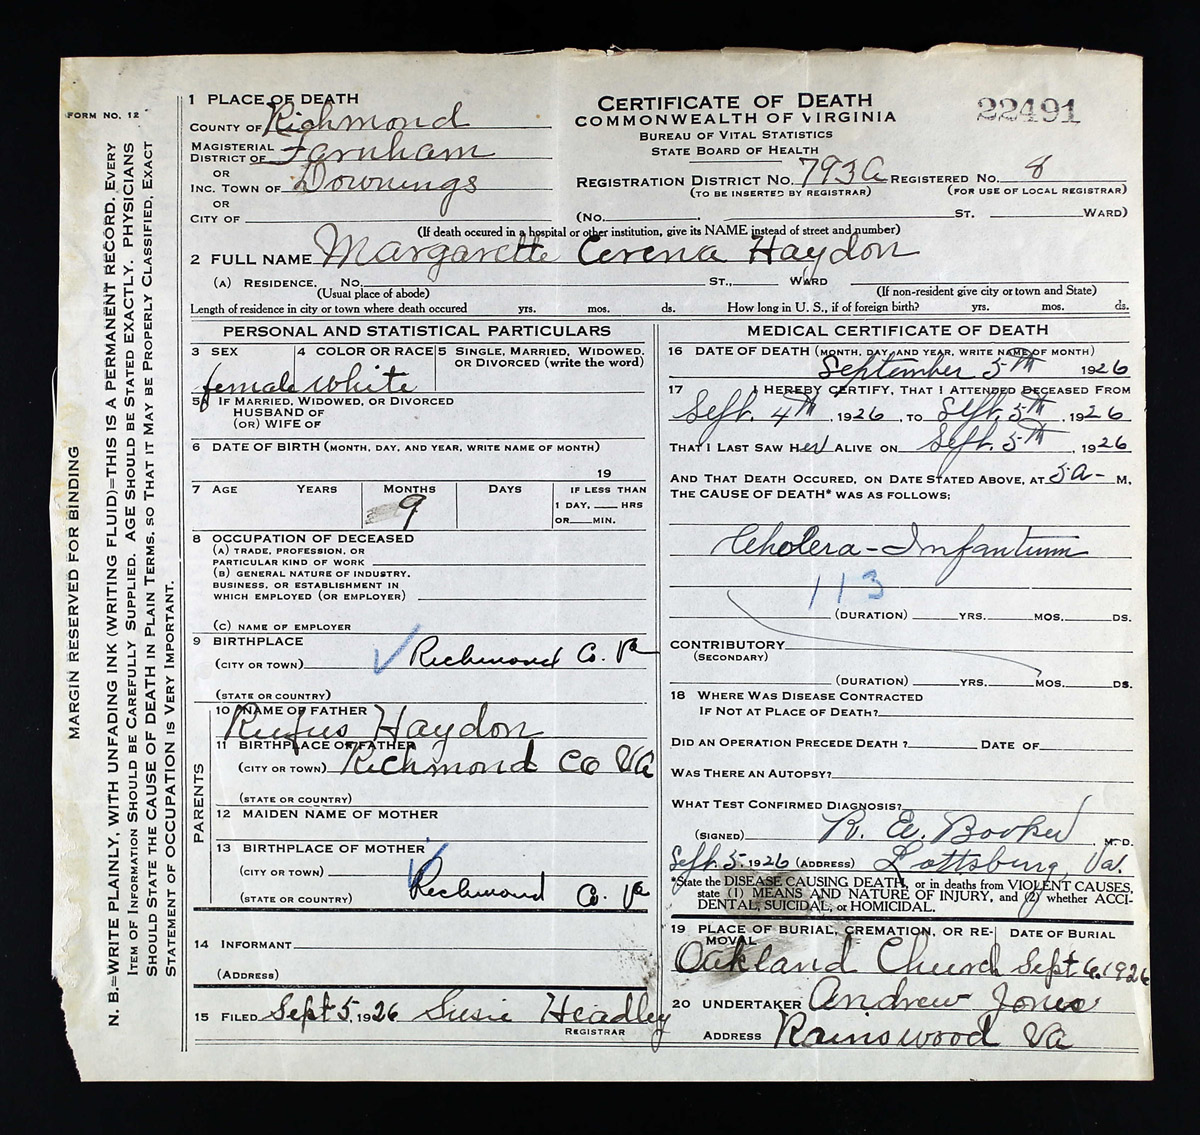 FORM NO. 12
MARGIN RESERVED FOR BINDING
N. B.—WRITE PLAINLY, WITH UNFADING INK (WRITING FLUID)—THIS IS A PERMANENT RECORD. EVERY
ITEM OF INFORMATION SHOULD BE CAREFULLY SUPPLIED. AGE SHOULD BE STATED EXACTLY. PHYSICIANS
SHOULD STATE THE CAUSE OF DEATH IN PLAIN TERMS, SO THAT IT MAY BE PROPERLY CLASSIFIED, EXACT
STATEMENT OF OCCUPATION IS VERY IMPORTANT.
1 PLACE OF DEATH
COUNTY OF Richmond
MAGISTERIAL
DISTRICT OF Farnham
OR
INC. TOWN OF Downings
OR
CITY OF
CERTIFICATE OF DEATH
COMMONWEALTH OF VIRGINIA
BUREAU OF VITAL STATISTICS
STATE BOARD OF HEALTH
22491
REGISTRATION DISTRICT NO. 793a REGISTERED NO. 8
(TO BE INSERTED BY REGISTRAR) (FOR USE OF LOCAL REGISTRAR)
(NO. ST. WARD)
(If death occured in a hospital or other institution, give its NAME instead of street and number)
2 FULL NAME Margarette Cerena Haydon
(A) RESIDENCE. NO. ST., WARD
(Usual place of abode) (If non-resident give city or town and State)
Length of residence in city or town where death occured yrs. mos. ds. How long in U. S., if of foreign birth? yrs. mos. ds.
PERSONAL AND STATISTICAL PARTICULARS
3 SEX 4 COLOR OR RACE 5 SINGLE, MARRIED, WIDOWED,
OR DIVORCED (write the word)
female white
5A IF MARRIED, WIDOWED, OR DIVORCED
HUSBAND OF
(OR) WIFE OF
6 DATE OF BIRTH (MONTH, DAY, AND YEAR, WRITE NAME OF MONTH)
19
7 AGE YEARS MONTHS DAYS IF LESS THAN
1 DAY, HRS
OR MIN.
9
8 OCCUPATION OF DECEASED
(A) TRADE, PROFESSION, OR
PARTICULAR KIND OF WORK
(B) GENERAL NATURE OF INDUSTRY,
BUSINESS, OR ESTABLISHMENT IN
WHICH EMPLOYED (OR EMPLOYER)
(C) NAME OF EMPLOYER
9 BIRTHPLACE
(CITY OR TOWN) Richmond Co. Va
(STATE OR COUNTRY)
PARENTS
10 NAME OF FATHER
Rufus Haydon
11 BIRTHPLACE OF FATHER
(CITY OR TOWN) Richmond Co Va
(STATE OR COUNTRY)
12 MAIDEN NAME OF MOTHER
13 BIRTHPLACE OF MOTHER
(CITY OR TOWN)
(STATE OR COUNTRY) Richmond Co. Va
14 INFORMANT
(ADDRESS)
15 FILED Sept 5, 1926 Susie Headley
REGISTRAR
MEDICAL CERTIFICATE OF DEATH
16 DATE OF DEATH (MONTH, DAY, AND YEAR, WRITE NAME OF MONTH)
September 5th 1926
17 I HEREBY CERTIFY, THAT I ATTENDED DECEASED FROM
Sept. 4th, 1926, TO Sept. 5th, 1926
THAT I LAST SAW Her ALIVE ON Sept. 5th, 1926
AND THAT DEATH OCCURED, ON DATE STATED ABOVE, AT 5a- M.
THE CAUSE OF DEATH* WAS AS FOLLOWS:
Cholera-Infantum
113
(DURATION) YRS. MOS. DS.
CONTRIBUTORY
(SECONDARY)
(DURATION) YRS. MOS. DS.
18 WHERE WAS DISEASE CONTRACTED
IF NOT AT PLACE OF DEATH?
DID AN OPERATION PRECEDE DEATH? DATE OF
WAS THERE AN AUTOPSY?
WHAT TEST CONFIRMED DIAGNOSIS?
(SIGNED) R. E. Booker, M. D.
Sept. 5, 1926 (ADDRESS) Lottsburg, Va.
*State the DISEASE CAUSING DEATH, or in deaths from VIOLENT CAUSES,
state (1) MEANS AND NATURE OF INJURY, and (2) whether ACCI-
DENTAL, SUICIDAL, or HOMICIDAL.
19 PLACE OF BURIAL, CREMATION, OR RE- DATE OF BURIAL
MOVAL
Oakland Church Sept 6, 1926
20 UNDERTAKER Andrew Jones
ADDRESS Rainswood Va